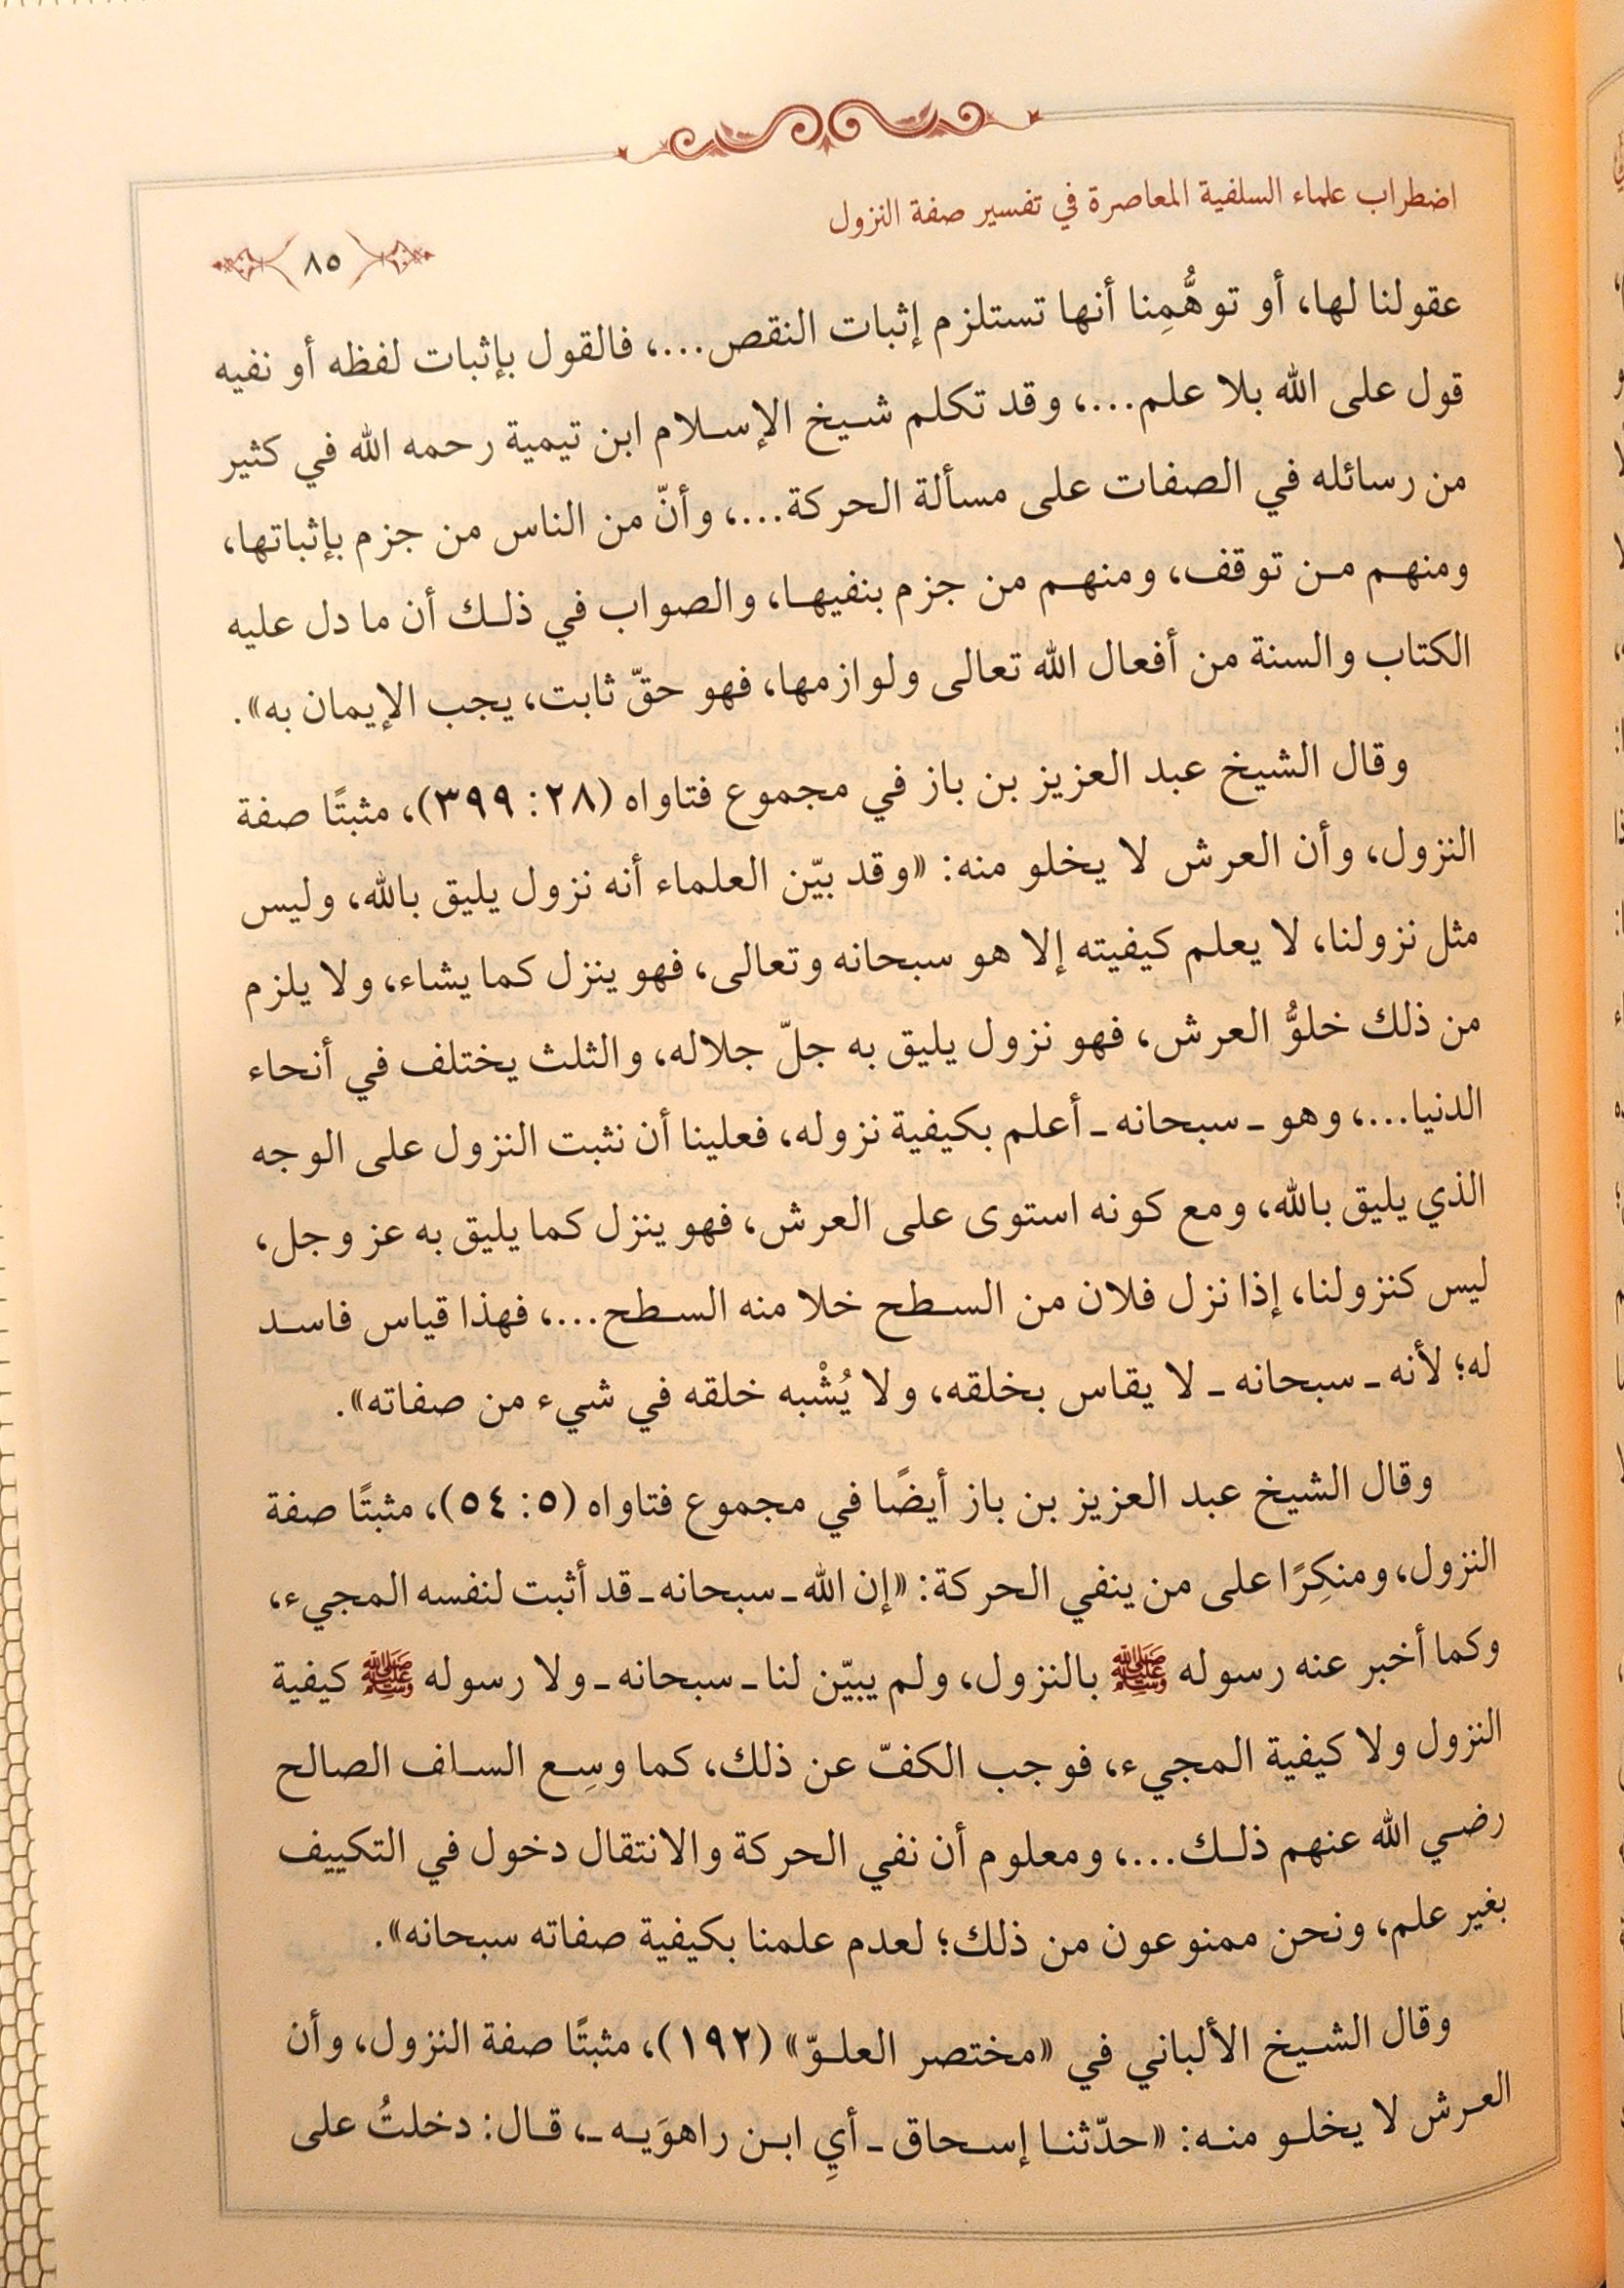 اضطراب علماء السلفية المعاصرة في تفسير صفة النزول
٨٥
عقولنا لها، أو توهُّمِنا أنها تستلزم إثبات النقص...، فالقول بإثبات لفظه أو نفيه
قول على الله بلا علم...، وقد تكلم شيخ الإسلام ابن تيمية رحمه الله في كثير
من رسائله في الصفات على مسألة الحركة...، وأنّ من الناس من جزم بإثباتها،
ومنهم من توقف، ومنهم من جزم بنفيها، والصواب في ذلك أن ما دل عليه
الكتاب والسنة من أفعال الله تعالى ولوازمها، فهو حقّ ثابت، يجب الإيمان به».
وقال الشيخ عبد العزيز بن باز في مجموع فتاواه (٢٨: ٣٩٩)، مثبتًا صفة
النزول، وأن العرش لا يخلو منه: «وقد بيّن العلماء أنه نزول يليق بالله، وليس
مثل نزولنا، لا يعلم كيفيته إلا هو سبحانه وتعالى، فهو ينزل كما يشاء، ولا يلزم
من ذلك خلوُّ العرش، فهو نزول يليق به جلّ جلاله، والثلث يختلف في أنحاء
الدنيا...، وهو ـ سبحانه ـ أعلم بكيفية نزوله، فعلينا أن نثبت النزول على الوجه
الذي يليق بالله، ومع كونه استوى على العرش، فهو ينزل كما يليق به عز وجل،
ليس كنزولنا، إذا نزل فلان من السطح خلا منه السطح...، فهذا قياس فاسد
له؛ لأنه ـ سبحانه ـ لا يقاس بخلقه، ولا يُشْبه خلقه في شيء من صفاته».
وقال الشيخ عبد العزيز بن باز أيضًا في مجموع فتاواه (٥: ٥٤)، مثبتًا صفة
النزول، ومنكِرًا على من ينفي الحركة: «إن الله ـ سبحانه ـ قد أثبت لنفسه المجيء،
وكما أخبر عنه رسوله ﷺ بالنزول، ولم يبيّن لنا ـ سبحانه ـ ولا رسوله ﷺ كيفية
النزول ولا كيفية المجيء، فوجب الكفّ عن ذلك، كما وسِع السلف الصالح
رضي الله عنهم ذلك...، ومعلوم أن نفي الحركة والانتقال دخول في التكييف
بغير علم، ونحن ممنوعون من ذلك؛ لعدم علمنا بكيفية صفاته سبحانه».
وقال الشيخ الألباني في «مختصر العلوّ» (١٩٢)، مثبتًا صفة النزول، وأن
العرش لا يخلو منه: «حدّثنا إسحاق ـ أيِ ابن راهوَيه ـ، قال: دخلتُ على